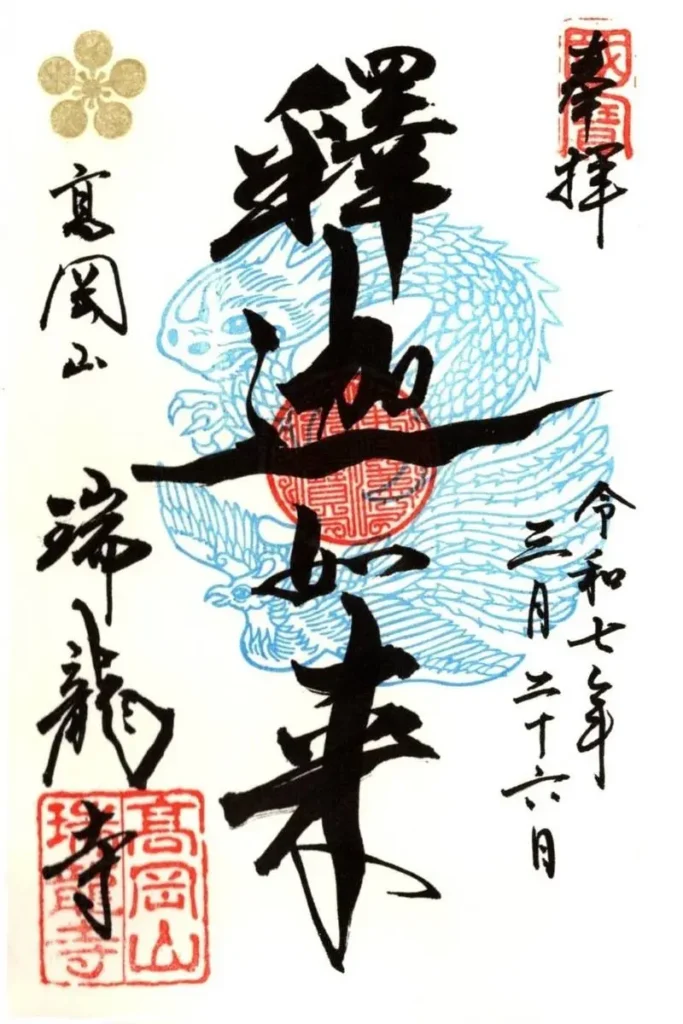 國寶
奉拝
令和七年
三月二十六日
釋迦如来
高岡山
瑞龍寺
髙岡山
瑞龍寺